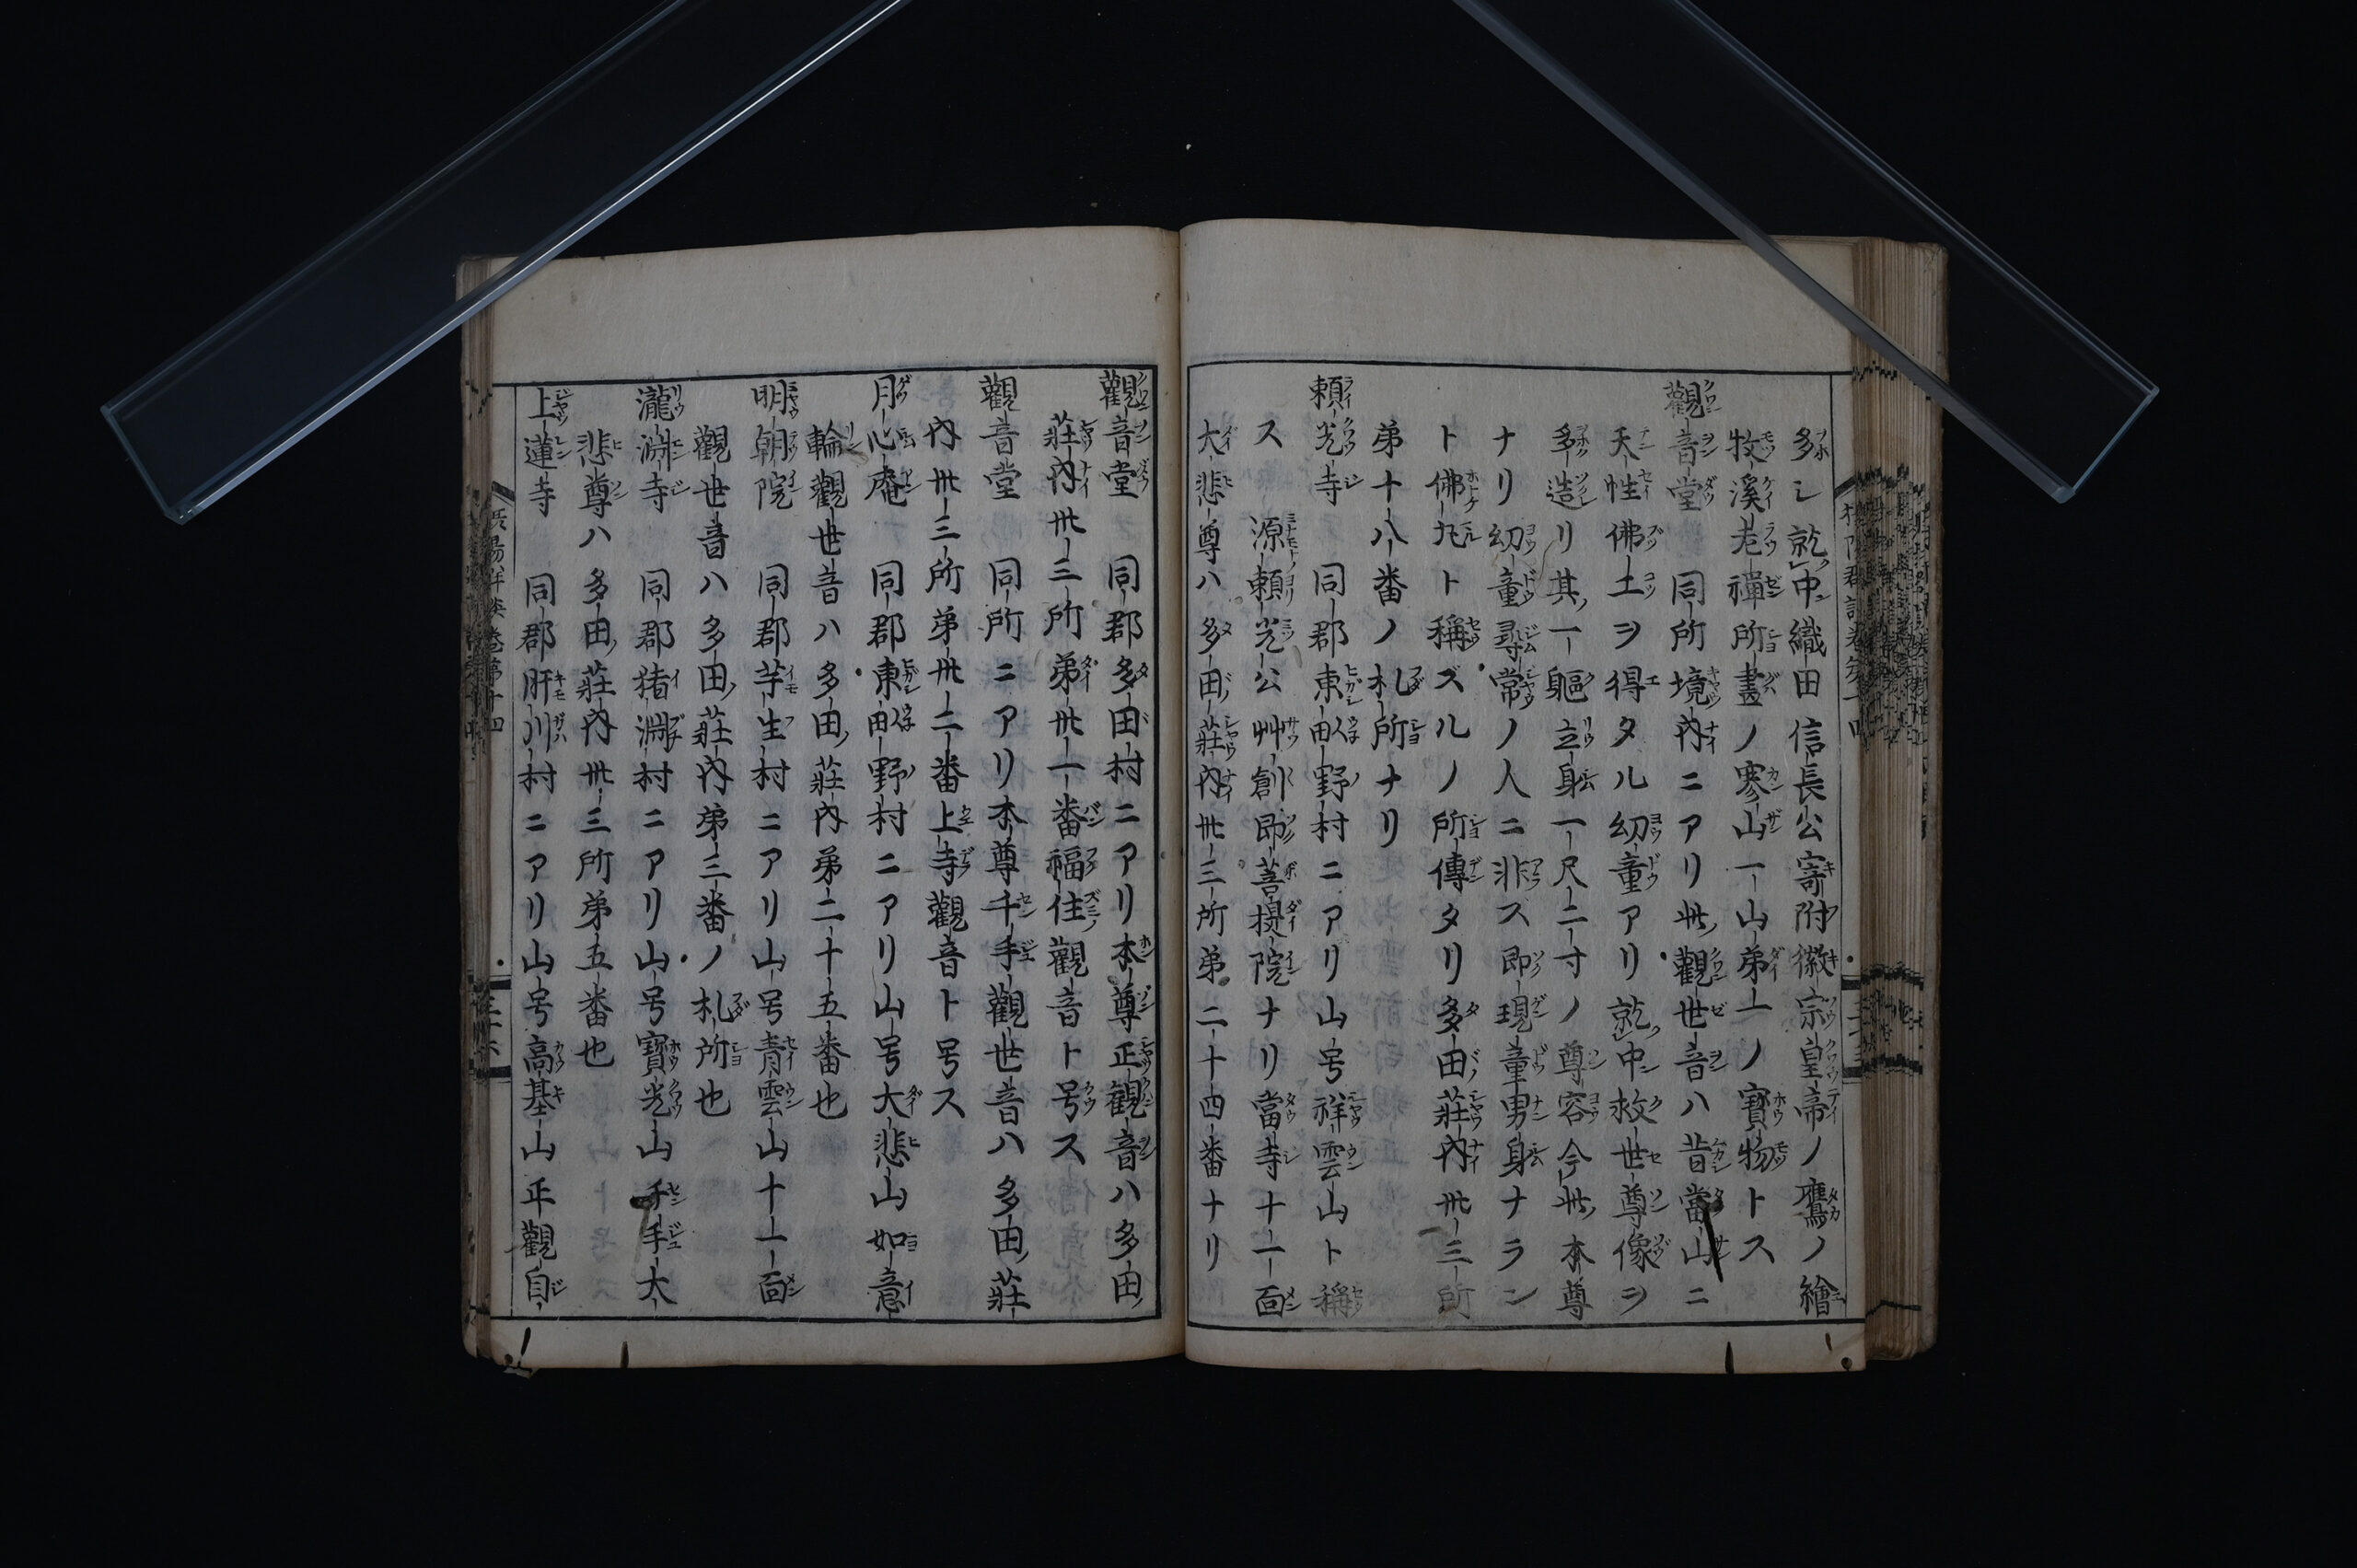 多シ就中織田信長公寄附徽宗皇帝ノ鷹ノ繪
牧溪老禪所畫ノ寒山一山第一ノ寶物トス
觀音堂 同所境内ニアリ此觀世音ハ昔當山ニ
天性佛土ヲ得タル幼童アリ就中救世尊像ヲ
多造リ其一軀立身一尺二寸ノ尊容今此本尊
ナリ幼童尋常ノ人ニ非ス即現童男身ナラン
ト佛丸ト稱ズルノ所傳タリ多田莊内卅三所
第十八番ノ札所ナリ
頼光寺 同郡東畑野村ニアリ山号祥雲山ト稱
ス 源頼光公艸創即菩提院ナリ當寺十一面
大悲尊ハ多田莊内卅三所第二十四番ナリ
觀音堂 同郡多田村ニアリ本尊正觀音ハ多田
莊内卅三所第卅一番福住觀音ト号ス
觀音堂 同所ニアリ本尊千手觀世音ハ多田莊
内卅三所第卅二番上寺觀音ト号ス
月心庵 同郡東畑野村ニアリ山号大悲山如意
輪觀世音ハ多田莊内第二十五番也
明朝院 同郡芋生村ニアリ山号青雲山十一面
觀世音ハ多田莊内第三番ノ札所也
瀧淵寺 同郡猪淵村ニアリ山号寶光山千手大
悲尊ハ多田莊内卅三所第五番也
上蓮寺 同郡肝川村ニアリ山号高基山正觀自